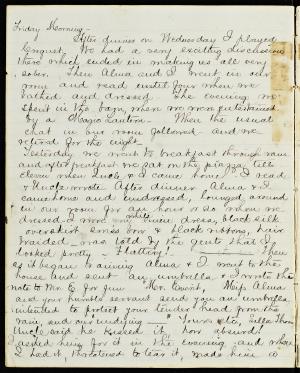 Friday Morning -
After dinner on Wednesday I played
Croquet. We had a very exciting discussion
there which ended in making us all very
sober. Then Alma and I went in our
room and read until four when we
bathed and dressed. The evening we
spent in the barn, when we were entertained
by a Magic Lantern. Then the usual
chat in our room followed and we
retired for the night.
Yesterday we went to breakfast through rain
and after breakfast we sat on the piazza till
eleven when Uncle & I came home & I read
& Uncle wrote. After dinner Alma & I
came home and undressed, lounged around
in our room for an hour or so then we
dressed. I wore my white linen dress, black silk
overskirt, sash & black ribbons, hair
braided - was told by the gents that I
looked pretty - Flattery! Then
as it began raining Alma & I went to the
house and sent an umbrella & I wrote the
note to Mr. C for fun "Mr. Count, Miss Alma
and your humble servant send you an umbrella
intended to protect your tender head from the
rain, and our undying - " Yours etc, Ella Thom
Uncle said he kissed it, how absurd!
I asked him for it in the evening and when
I had it, threatened to tear it, made him so